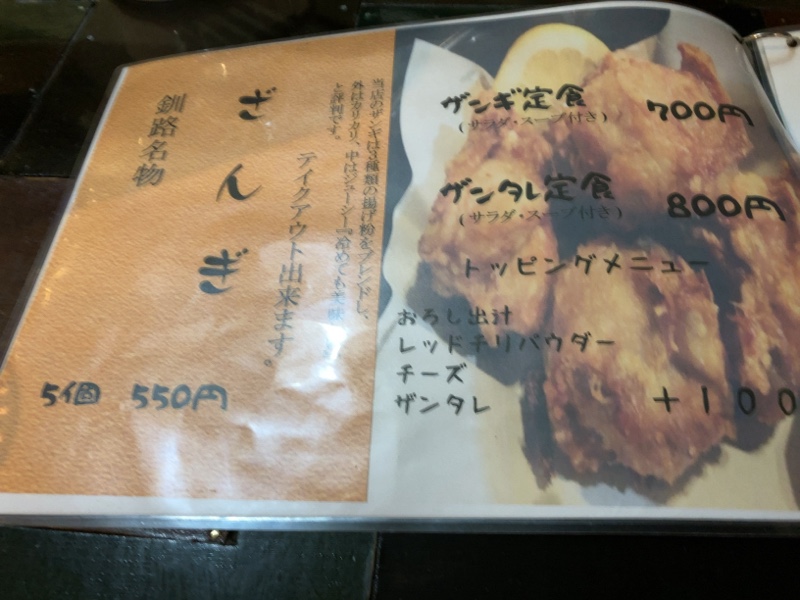 釧路名物
ざんぎ
当店のザンギは3種類の揚げ粉をブレンドし、
外はカリカリ、中はジューシー『冷めても美味
と評判です。
テイクアウト出来ます。
5個 550円
ザンギ定食 700円
(サラダ・スープ付き)
ザンタレ定食 800円
(サラダ・スープ付き)
トッピングメニュー
おろし出汁
レッドチリパウダー
チーズ
ザンタレ +100